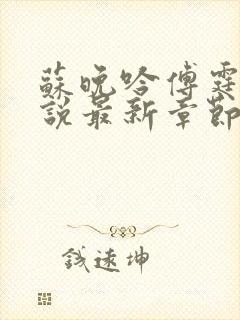 蘇晚吟傅霆
說最新章節
錢遠坤